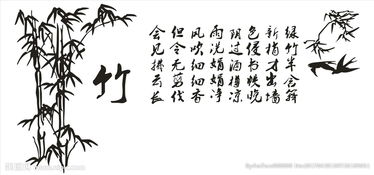 绿竹半含箨
新梢才出墙
色侵书帙晚
阴过酒樽凉
雨洗娟娟净
风吹细细香
但令无剪伐
会见拂云长
竹